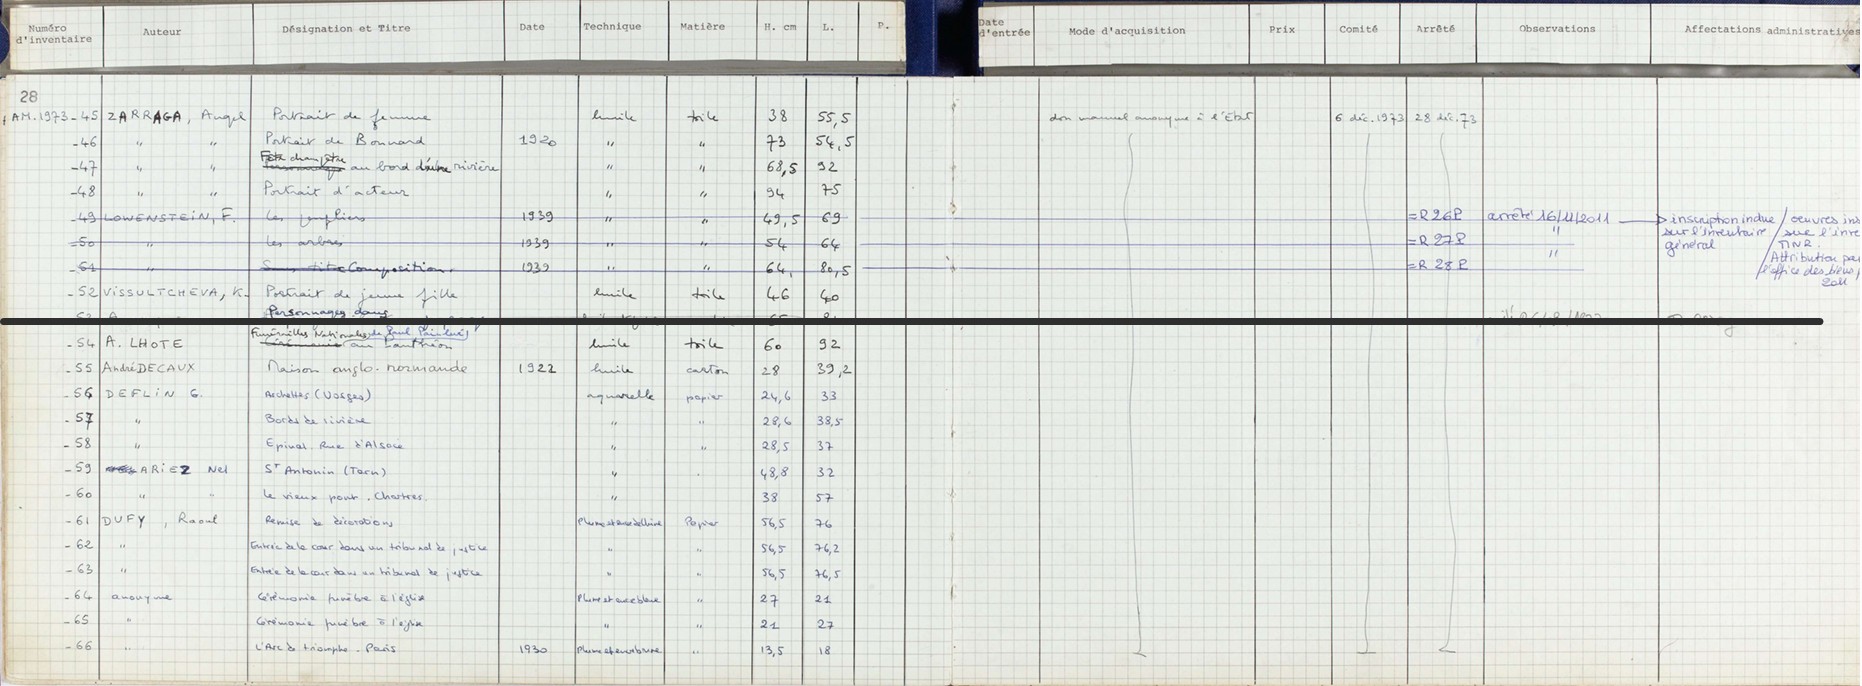 Numéro d'inventaire Auteur Désignation et Titre Date Technique Matière H. cm L. P. Date d'entrée Mode d'acquisition Prix Comité Arrêté Observations Affectations administratives
28
AM.1973-45 ZARRAGA, Angel Portrait de femme huile toile 38 55,5 don manuel anonyme à l'Etat 6 déc.1973 28 déc.73
-46 " " Portrait de Bonnard 1920 " " 73 54,5
-47 " " Fête champêtre au bord d'une rivière " " 68,5 92
-48 " " Portrait d'acteur " " 94 75
-49 LOWENSTEIN, F. Les peupliers 1939 " " 49,5 69 =R26P arrêté 16/11/2011 inscription indue / oeuvres ins
-50 " Les arbres 1939 " " 54 64 =R 27P " sur l'inventaire / sur l'inve
général / MNR.
-51 " Sans titre Composition 1939 " " 64, 80,5 =R 28P " Attribution par
l'office des biens
2011
-52 VISSULTCHEVA, K. Portrait de jeune fille huile toile 46 40
Personnages dans
Funérailles Nationales de Paul Painlevé
-54 A. LHOTE Cérémonie au Panthéon huile toile 60 92
-55 André DECAUX Maison anglo-normande 1922 huile carton 28 39,2
-56 DEFLIN G. Archettes (Vosges) aquarelle papier 24,6 33
-57 " Bords de rivière " " 28,6 38,5
-58 " Epinal. Rue d'Alsace " " 28,5 37
-59 ARIEZ Nel St Antonin (Tarn) " 48,8 32
-60 " " Le vieux pont. Chartres. " 38 57
-61 DUFY, Raoul Remise de décorations Plume et encre de Chine Papier 56,5 76
-62 " Entrée de la cour dans un tribunal de justice " " 56,5 76,2
-63 " Entrée de la cour dans un tribunal de justice " " 56,5 76,5
-64 anonyme Cérémonie funèbre à l'église Plume et encre bleue " 27 21
-65 " Cérémonie funèbre à l'église " " 21 27
-66 " L'Arc de triomphe. Paris 1930 Plume et encre brune " 13,5 18